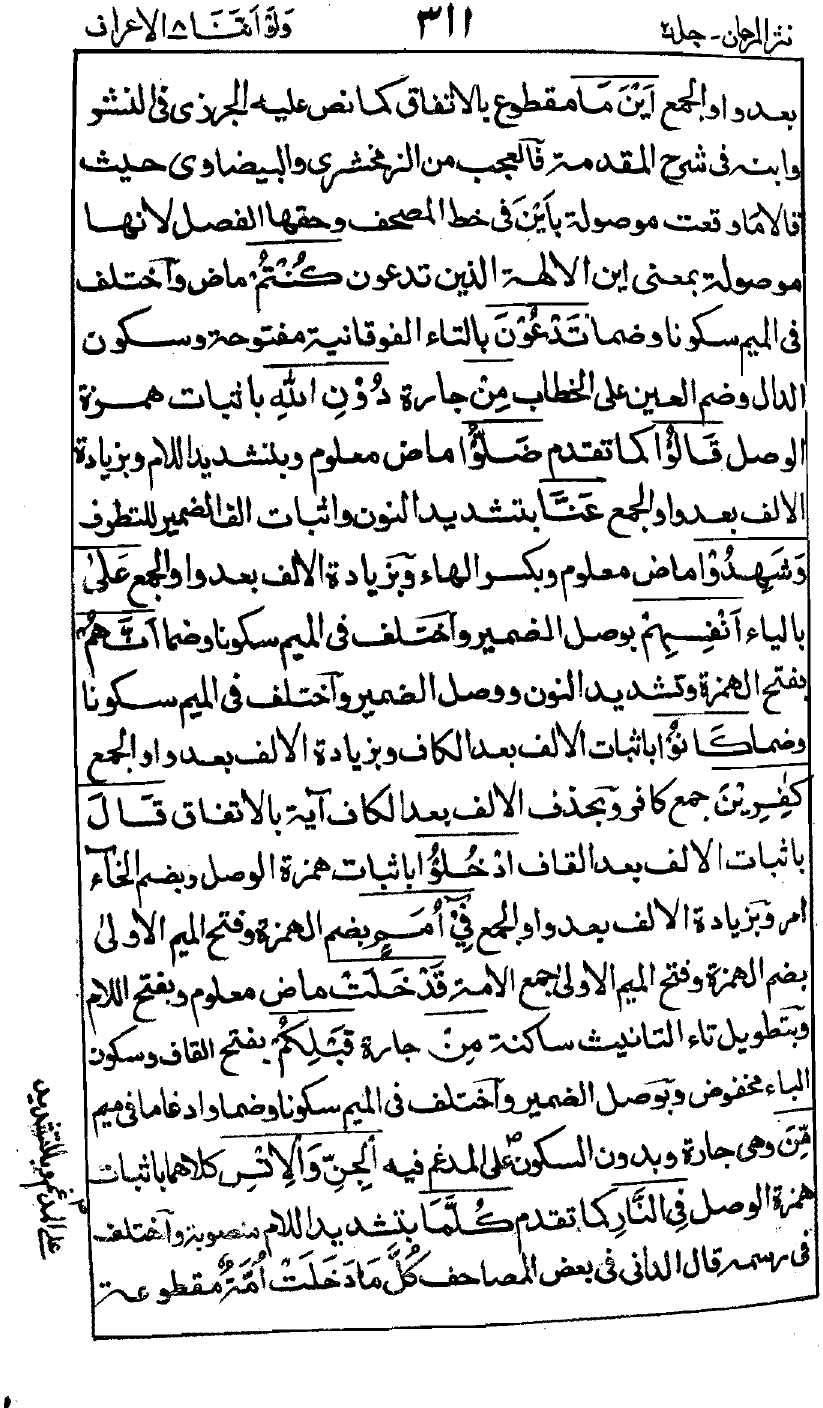 نثر المرجان - جلد٢ ٣١١ وَلَوْ أَنَّنَا ٨ الاعراف
بعد واو الجمع اَيْنَ مَا مقطوع بالاتفاق كما نص عليه الجزرى فى النشر
وابنه فى شرح المقدمة فالعجب من الزمخشرى والبيضاوى حيث
قالا ما وقعت موصولة بأين فى خط المصحف وحقها الفصل لانها
موصولة بمعنى اين الالهة الذين تدعون كُنْتُمْ ماض وآختلف
فى الميم سكونا وضما تَدْعُوْنَ بالتاء الفوقانية مفتوحة وسكون
الدال وضم العين على الخطاب مِنْ جارة دُوْنِ اللهِ باثبات همزة
الوصل قَالُوْا كما تقدم ضَلُّوْا ماض معلوم وبتشديد اللام وبزيادة
الالف بعد واو الجمع عَنَّا بتشديد النون واثبات الف الضمير للتطرف
وَشَهِدُوْا ماض معلوم وبكسر الهاء وبزيادة الالف بعد واو الجمع عَلٰى
بالياء اَنْفُسِهِمْ بوصل الضمير وآختلف فى الميم سكونا وضما اَنَّهُمْ
بفتح الهمزة وتشديد النون ووصل الضمير وآختلف فى الميم سكونا
وضما كَانُوْا باثبات الالف بعد الكاف وبزيادة الالف بعد واو الجمع
كٰفِرِيْنَ جمع كافر وبحذف الالف بعد الكاف آية بالاتفاق قَالَ
باثبات الالف بعد القاف ادْخُلُوْا باثبات همزة الوصل وبضم الخاء
امر وبزيادة الالف بعد واو الجمع فِىْ اُمَمٍ بضم الهمزة وفتح الميم الاولى
بضم الهمزة وفتح الميم الاولى جمع الامة قَدْ خَلَتْ ماض معلوم وبفتح اللام
وبتطويل تاء التانيث ساكنة مِنْ جارة قَبْلِكُمْ بفتح القاف وسكون
الباء مخفوض وبوصل الضمير وآختلف فى الميم سكونا وضما وادغاما فى ميم
مِّنَ وهى جارة وبدون السكون على المدغم فيه الْجِنِّ وَالْاِنْسِ كلاهما باثبات
همزة الوصل فِى النَّارِ كما تقدم كُلَّمَا بتشديد اللام منصوبة وآختلف
فى رسمه قال الدانى فى بعض المصاحف كُلَّ مَا دَخَلَتْ اُمَّةٌ مقطوعة
على المدغم وبالتشديد